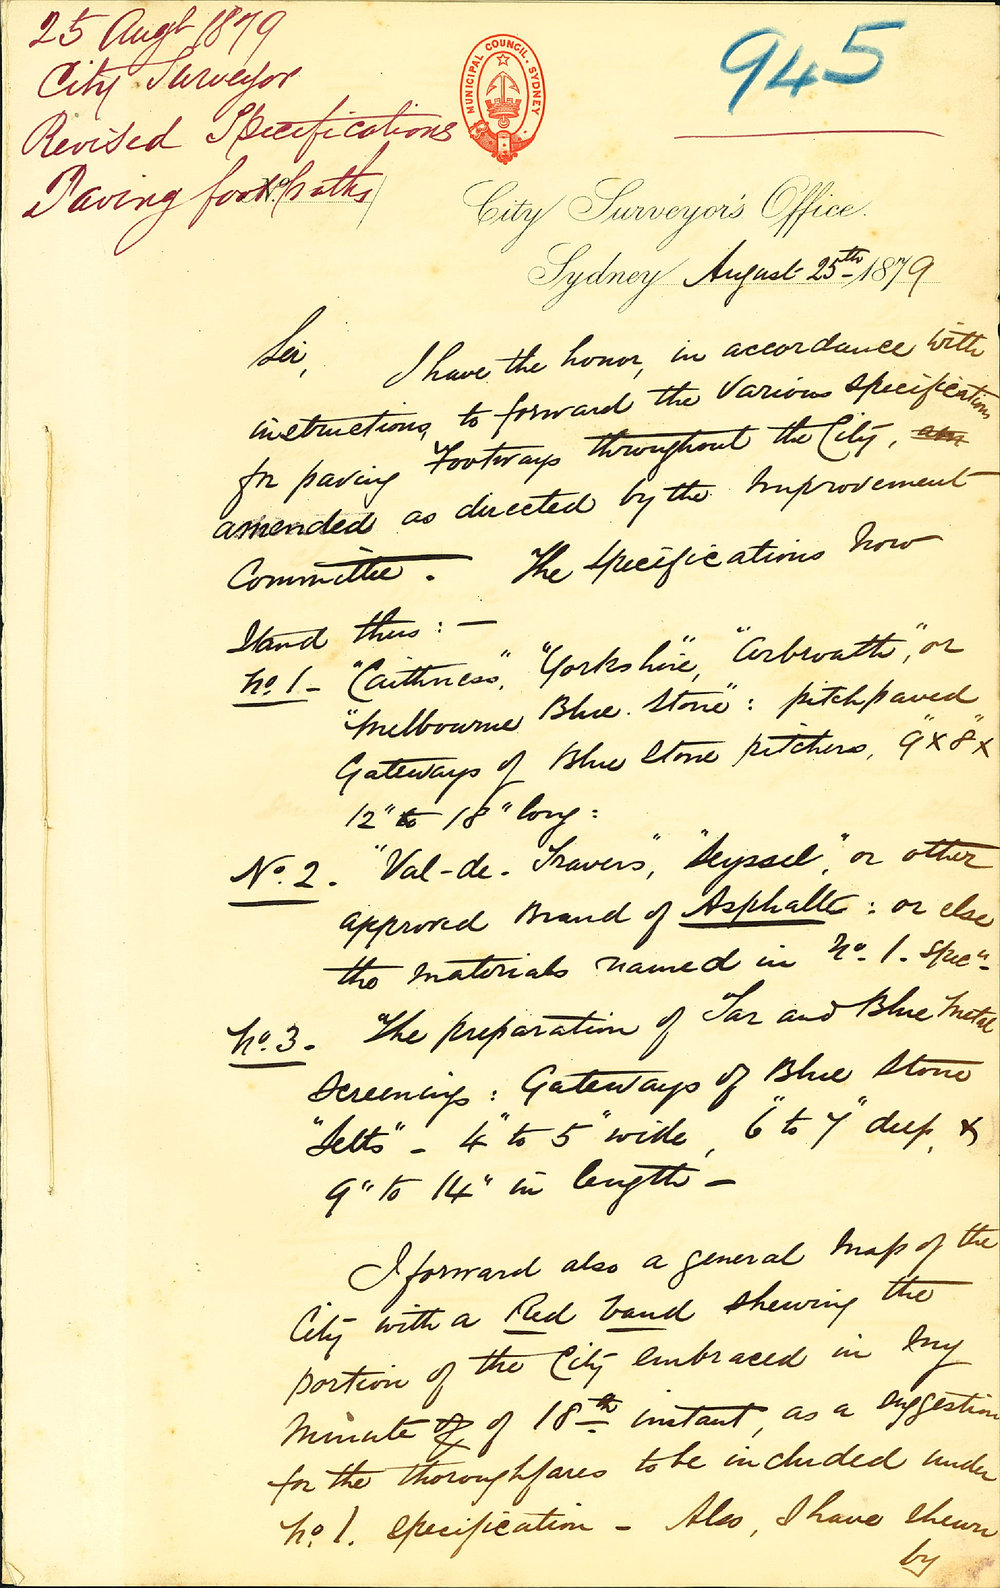 25 Augt 1879
City Surveyor
Revised Specifications
Paving foot paths
MUNICIPAL COUNCIL. SYDNEY.
945
City Surveyor's Office.
Sydney August 25th 1879
Sir, I have the honor, in accordance with
instructions, to forward the various specifications
for paving Footways throughout the City, am
amended as directed by the Improvement
Committee. The specifications now
Stand thus: —
No. 1 - "Caithness", "Yorkshire", "Arbroath", or
"Melbourne Blue Stone": pitch paved
Gateways of Blue Stone pitchers, 9" x 8" x
12" to 18" long:
No. 2. "Val-de-Travers", "Seyssel", or other
approved Brand of Asphalte: or else
the materials named in No. 1. Specn.
No. 3. The preparation of Tar and Blue Metal
Screenings: Gateways of Blue Stone
"Setts" - 4" to 5" wide, 6" to 7" deep, &
9" to 14" in length —
I forward also a general Map of the
City with a Red band shewing the
portion of the City embraced in my
Minute of of 18th instant, as a suggestion
for the thoroughfares to be included under
No. 1. specification - Also, I have shewn
by